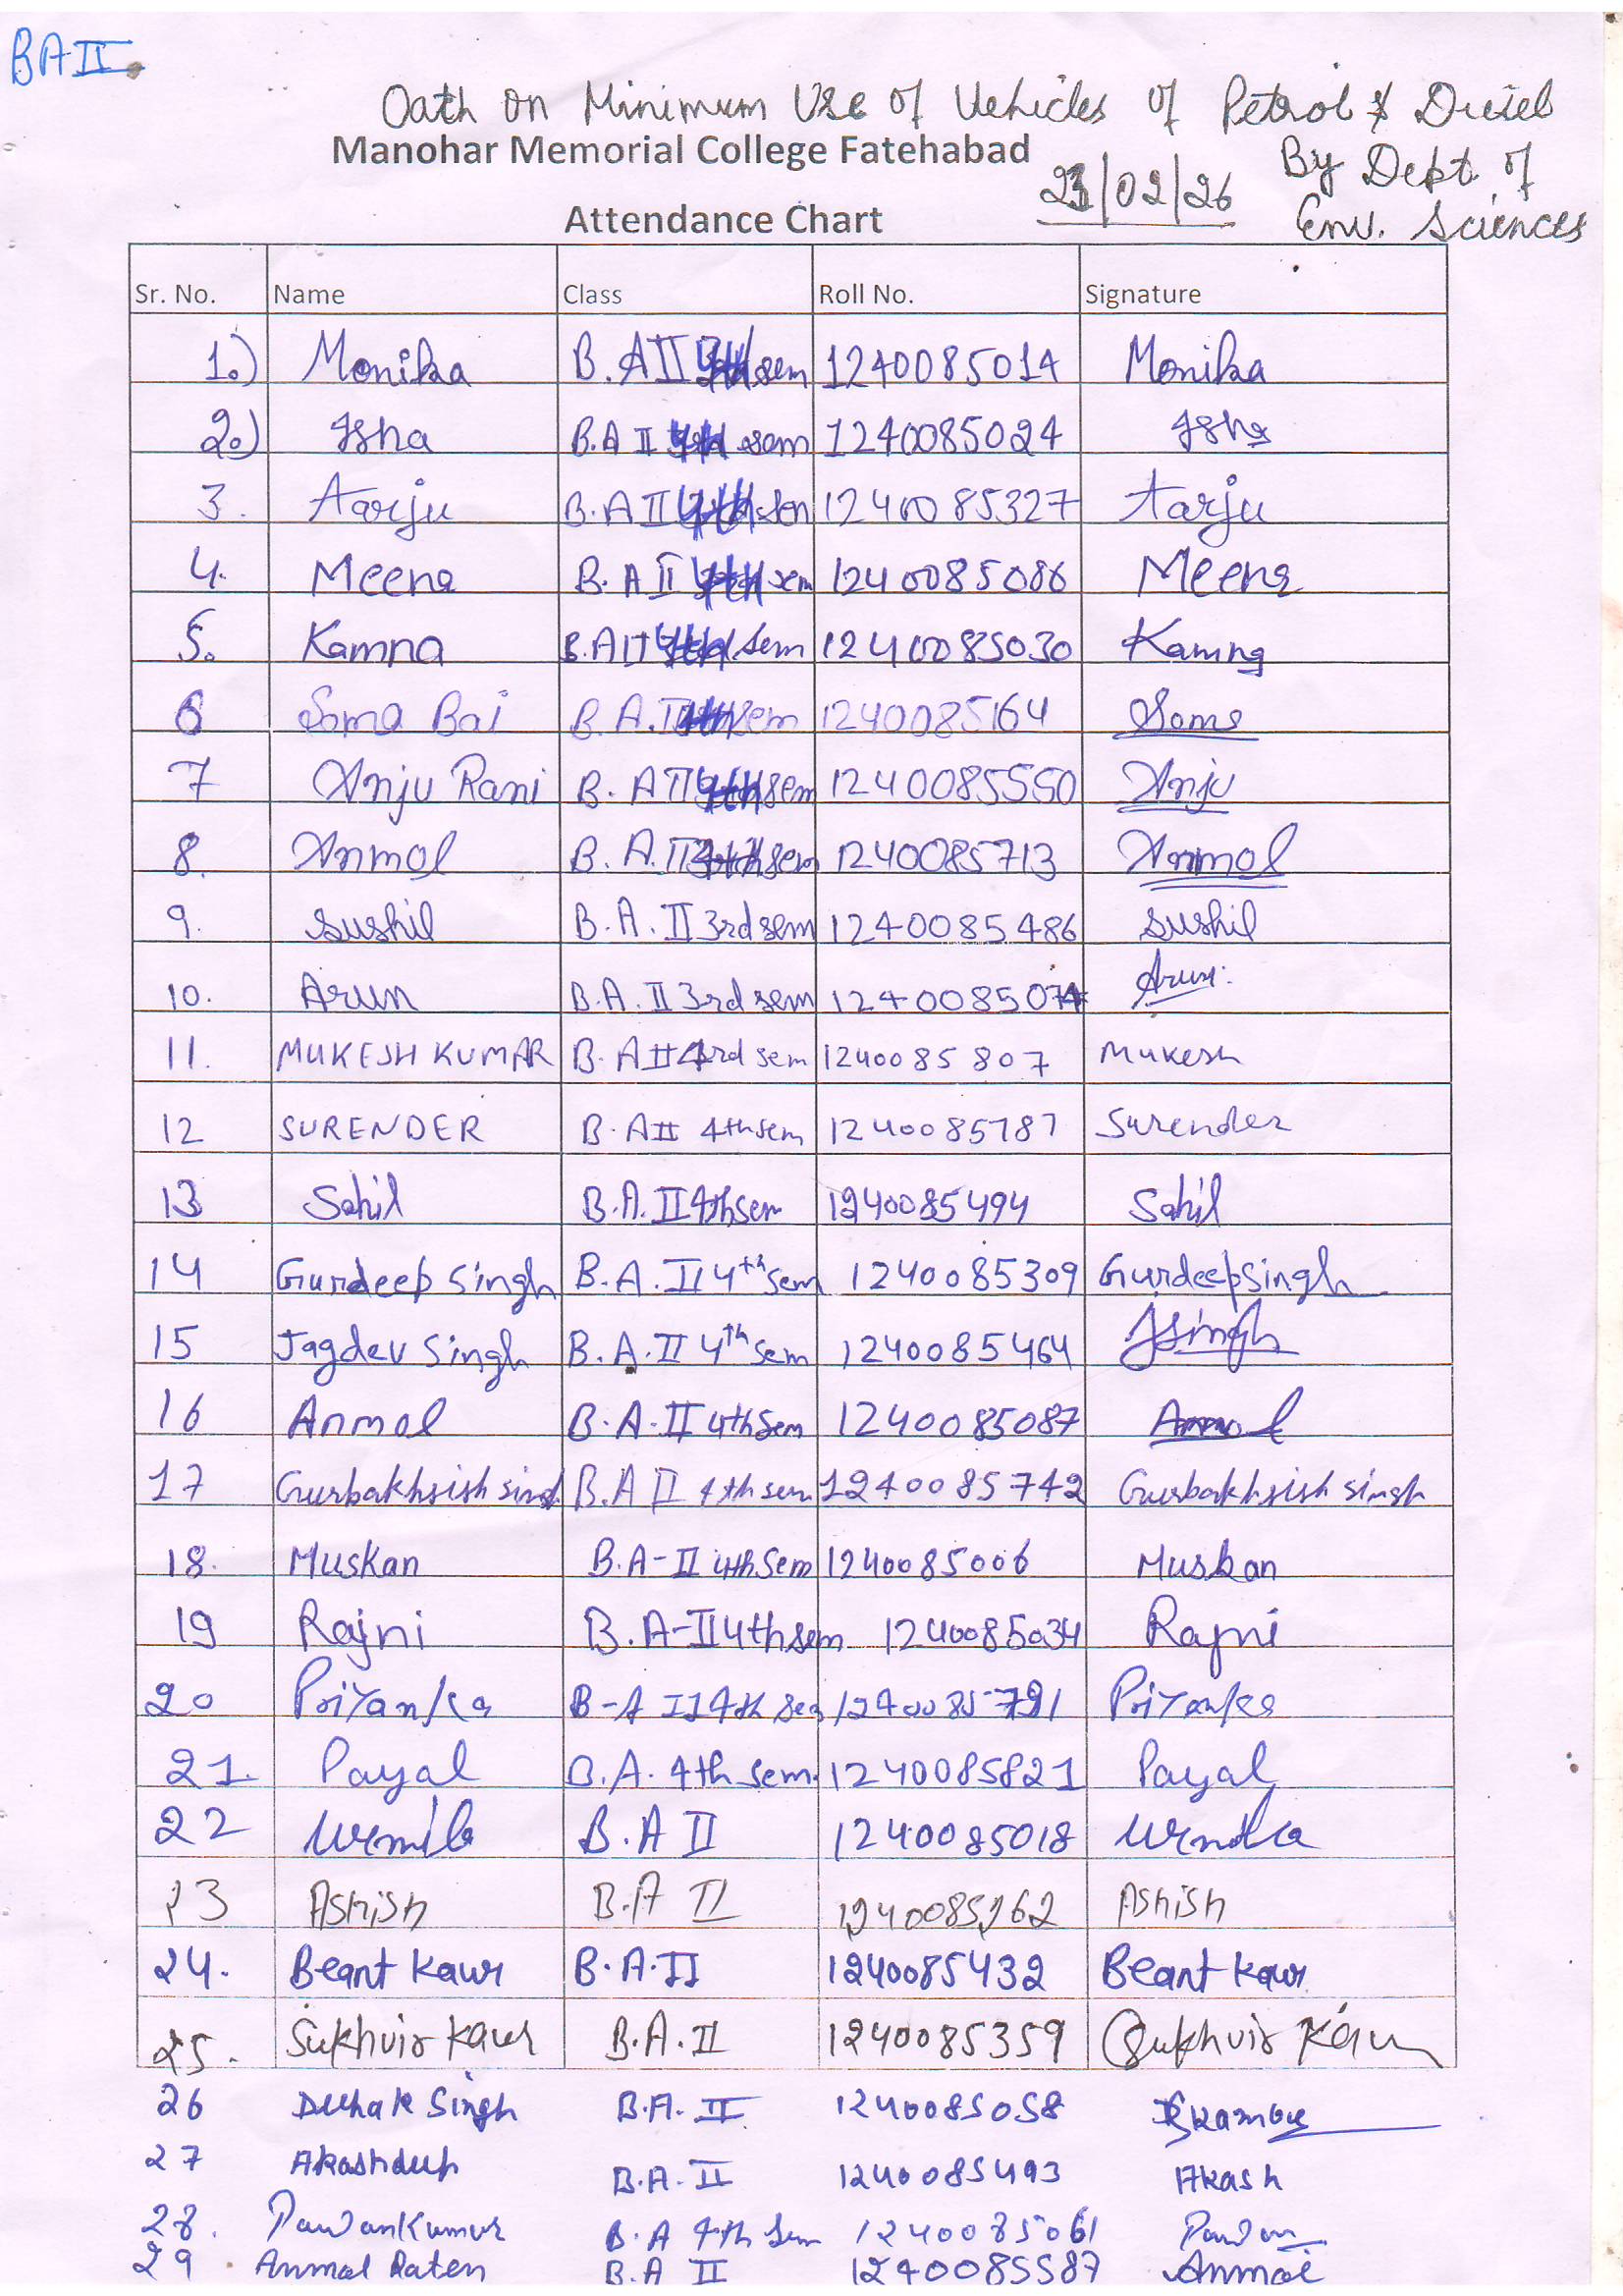 BA II
Oath on Minimum Use of Vehicles of Petrol & Diesel
Manohar Memorial College Fatehabad
21/02/26 By Dept. of
Attendance Chart Env. Sciences
Sr. No. Name Class Roll No. Signature
1.) Monika B. A II 4th sem 1240085014 Monika
2.) Isha B.A II 4th sem 1240085024 Isha
3. Aarju B.A II 4th sem 1240085327 Aarju
4. Meena B. A II 4th sem 1240085086 Meena
5. Kamna B.A II 4th sem 1240085030 Kamna
6 Soma Bai B.A.II 4th sem 1240085164 Soma
7 Anju Rani B. A II 4th sem 1240085550 Anju
8. Anmol B. A.II 4th sem 1240085713 Anmol
9. Sushil B.A. II 3rd sem 1240085486 Sushil
10. Arun B.A. II 3rd sem 1240085074 Arun
11. MUKESH KUMAR B. A II 4rd sem 1240085807 Mukesh
12 SURENDER B. A II 4th sem 1240085787 Surender
13 Sahil B.A. II 4th sem 1240085494 Sahil
14 Gurdeep Singh B. A. II 4th sem 1240085309 Gurdeep Singh
15 Jagdev Singh B. A. II 4th sem 1240085464 JSingh
16 Anmol B. A-II 4th Sem 1240085087 Anmol
17 Gurbakhsish singh B.A II 4th sem 1240085742 Gurbakhsish singh
18. Muskan B.A-II 4th Sem 1240085006 Muskan
19 Rajni B. A-II 4th sem 1240085034 Rajni
20 Priyanka B-A II 4th sem 1240085791 Priyanka
21. Payal B.A. 4th sem. 1240085821 Payal
22 Urmila B.A II 1240085018 Urmila
23 Ashish B.A II 1240085262 Ashish
24. Beant Kaur B.A.II 1240085432 Beant Kaur
25. Sukhvir Kaur B.A.II 1240085359 Sukhvir Kaur
26 Deepak Singh B.A. II 1240085058
27 Akashdeep B.A. II 1240085493 Akash
28. Pawan Kumar B. A 4th Sem 1240085061 Pawan
29 Anmol Raten B.A II 1240085587 Anmol